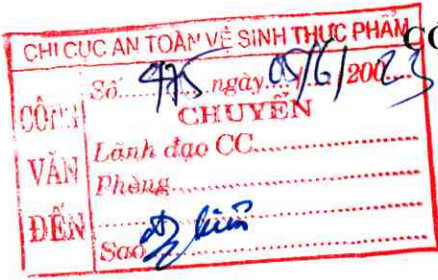 CHI CỤC AN TOÀN VỆ SINH THỰC PHẨM
CÔNG VĂN ĐẾN
Số 475 ngày 05/6/2023
CHUYỂN
Lãnh đạo CC
Phòng
Sao